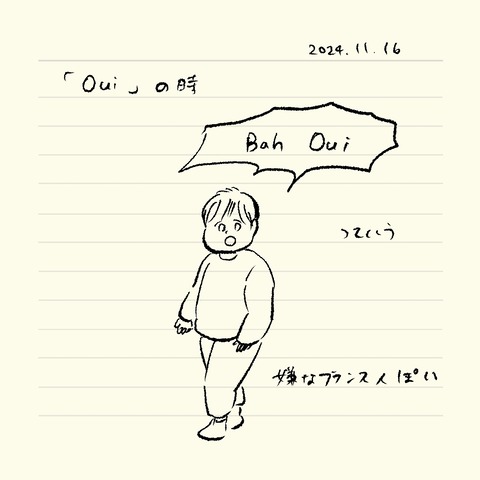 2024.11.16
「Oui」の時
Bah Oui
っていう
嫌なフランス人ぽい